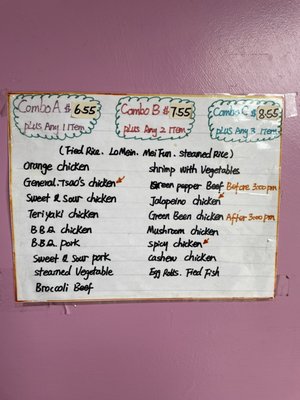 Combo A $6.55
plus Any 1 Item
Combo B $7.55
plus Any 2 Item
Combo C $8.55
plus Any 3 Item
(Fried Rice. LoMein. Mei Fun. steamed Rice)
Orange chicken
General.Tsao's chicken
Sweet & Sour chicken
Teriyaki chicken
B.B.Q chicken
B.B.Q pork
Sweet & Sour pork
steamed Vegetable
Broccoli Beef
shrimp with Vegetables
Green pepper Beef Before 3:00 pm
Jalapeino chicken
Green Been chicken After 3:00 pm
Mushroom chicken
spicy chicken
cashew chicken
Egg Rolls. Fied Fish